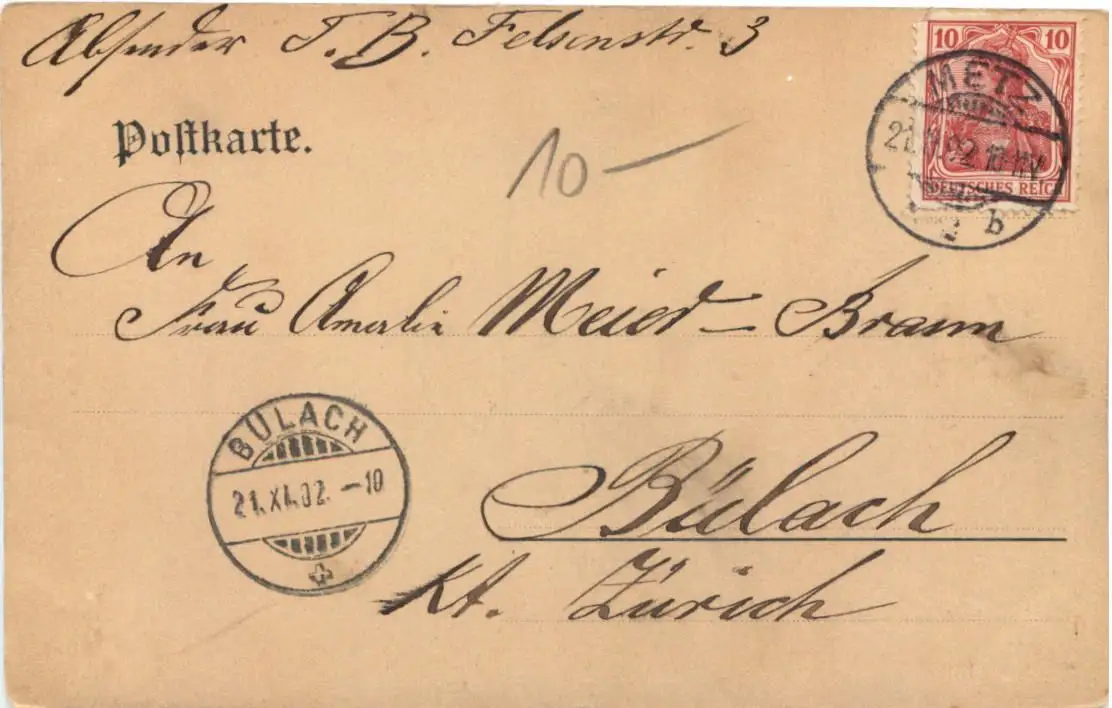 Absender T. B. Felsenstr. 3
Postkarte.
10 10
METZ
DEUTSCHES REICH
b
10 —
An
Frau Amalie Meier - Braun
BÜLACH
21.XI.02. -10
Bülach
Kt. Zürich